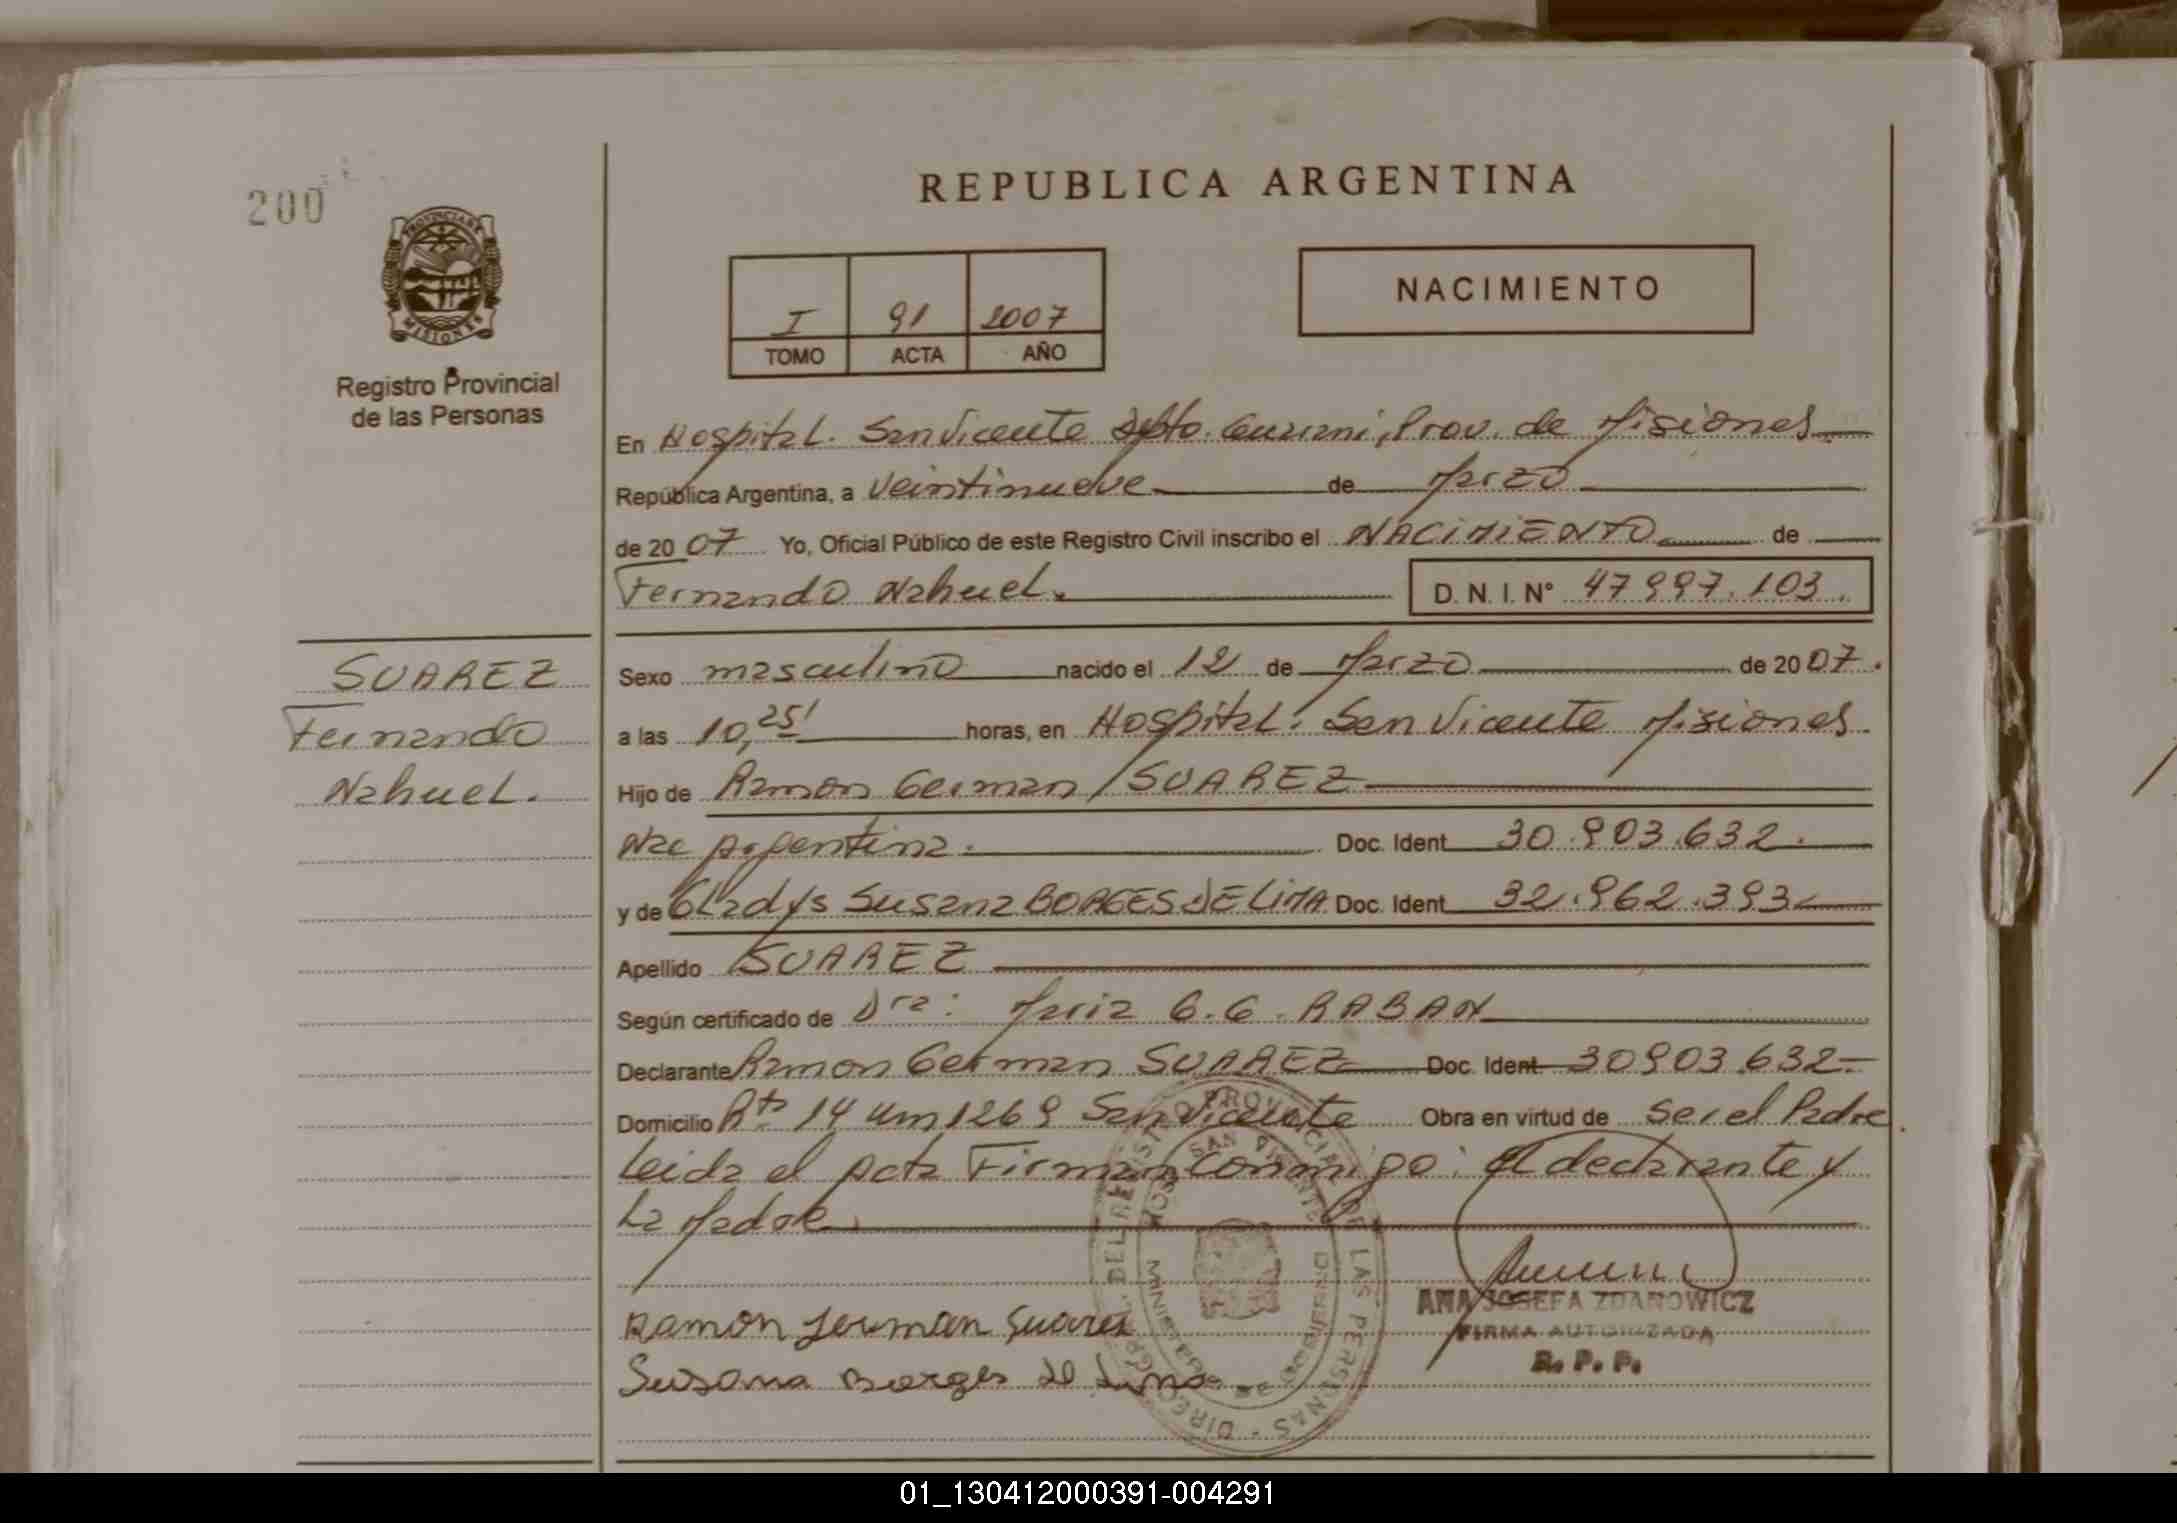 200
PROVINCIA DE
MISIONES
Registro Provincial
de las Personas
REPUBLICA ARGENTINA
I 91 2007
TOMO ACTA AÑO
NACIMIENTO
En Hospital. San Vicente Dpto. Guarani, Prov. de Misiones
República Argentina, a Veintinueve de Marzo
de 2007 Yo, Oficial Público de este Registro Civil inscribo el NACIMIENTO de
Fernando Nahuel. D. N. I. N° 47997.103.
SUAREZ
Fernando
Nahuel.
Sexo masculino nacido el 12 de Marzo de 2007.
a las 10,25' horas, en Hospital. San Vicente Misiones
Hijo de Ramon German SUAREZ
Nac Argentina. Doc. Ident 30.903.632.
y de Gladys Susana BORGES DE LIMA Doc. Ident 32.962.393
Apellido SUAREZ
Según certificado de Dra: Maria G.G. RABAN
Declarante Ramon German SUAREZ Doc. Ident 30903.632
Domicilio Rta 14 Km 1269 San Vicente Obra en virtud de Ser el Padre.
Leida el Acta Firman conmigo: el declarante y
La Madre
Ramon German Suarez
Susana Borges de Lima
ANA JOSEFA ZDANOWICZ
FIRMA AUTORIZADA
R. P. P.
DEL REGISTRO PROVINCIAL DE LAS PERSONAS - DIREC. GRAL.
HOSP. SAN VICENTE
MINISTERIO DE GOBIERNO
01_130412000391-004291